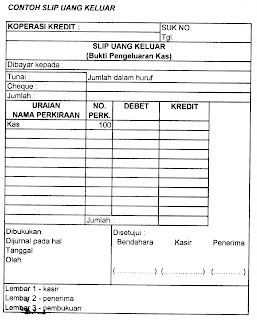 CONTOH SLIP UANG KELUAR
KOPERASI KREDIT :
SUK NO.
Tgl.
SLIP UANG KELUAR
(Bukti Pengeluaran Kas)
Dibayar kepada
Tunai :
Jumlah dalam huruf
Cheque :
Jumlah :
URAIAN NAMA PERKIRAAN
NO. PERK.
DEBET
KREDIT
Kas
100
Jumlah :
Dibukukan
Disetujui :
Dijurnal pada hal
Bendahara Kasir Penerima
Tanggal
Oleh
(................) (................) (................)
Lembar 1 - kasir
Lembar 2 - penerima
Lembar 3 - pembukuan